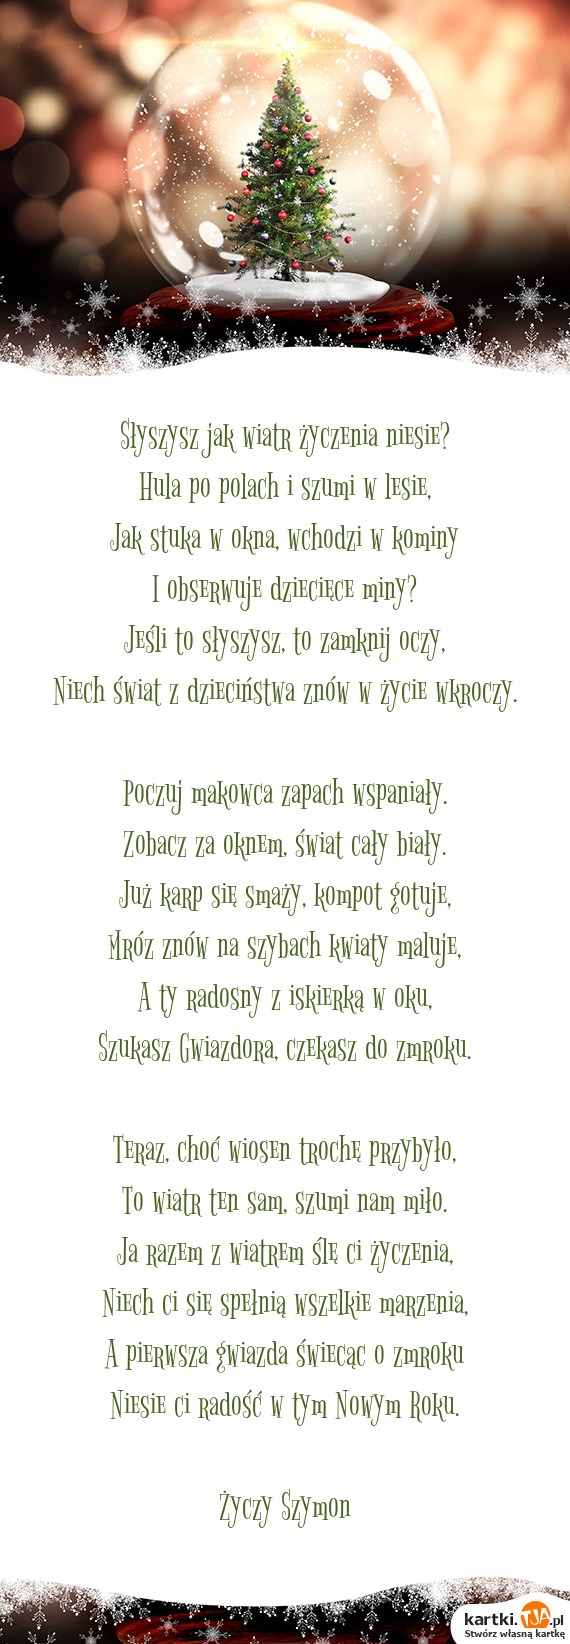 Słyszysz jak wiatr życzenia niesie?
Hula po polach i szumi w lesie,
Jak stuka w okna, wchodzi w kominy
I obserwuje dziecięce miny?
Jeśli to słyszysz, to zamknij oczy,
Niech świat z dzieciństwa znów w życie wkroczy.

Poczuj makowca zapach wspaniały.
Zobacz za oknem, świat cały biały.
Już karp się smaży, kompot gotuje,
Mróz znów na szybach kwiaty maluje,
A ty radosny z iskierką w oku,
Szukasz Gwiazdora, czekasz do zmroku.

Teraz, choć wiosen trochę przybyło,
To wiatr ten sam, szumi nam miło.
Ja razem z wiatrem ślę ci życzenia,
Niech ci się spełnią wszelkie marzenia,
A pierwsza gwiazda świecąc o zmroku
Niesie ci radość w tym Nowym Roku.

Życzy Szymon

kartki.TJA.pl
Stwórz własną kartkę